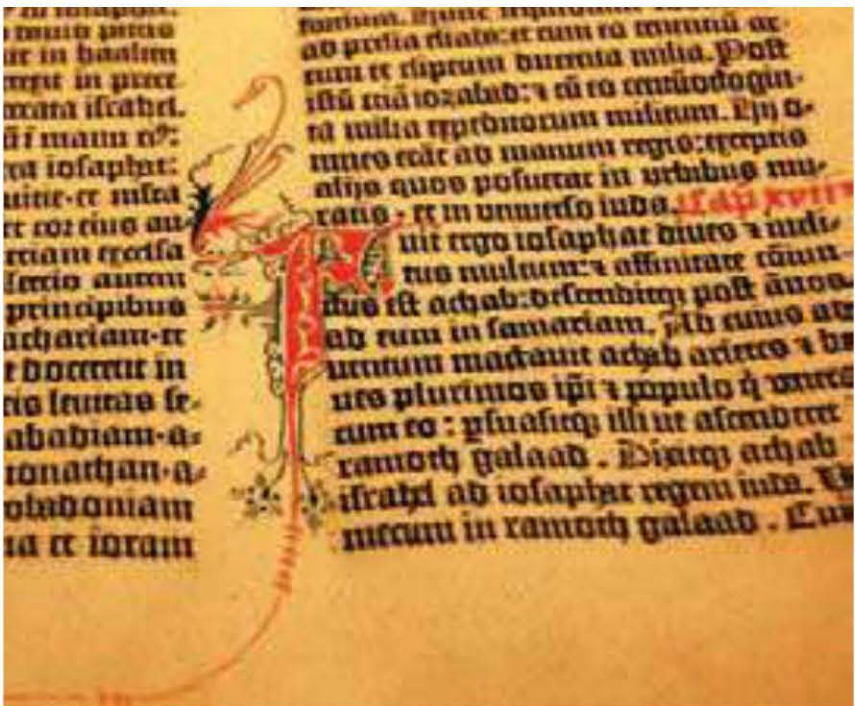 ur in baalim
peccata israhel.
ū ĩ manu eiꝰ:
ra iosaphat:
et cor eius au
etiam excelsa
tercio autem
principibus
achariam·et
t docerent in
levitas se-
abadiam·a-
ionathan·a-
tobadoniam
ia et ioram
ad prelia eliada: et cum eo tenentiū ar-
cum et clipeum ducenta milia. Post
istū etiā iozabad: ⁊ cū eo centūoctogin-
ta milia expeditorum militum. Hij o-
mnes erāt ad manum regis: exceptis
alijs quos posuerat in urbibus mu-
ratis· et in universo iuda. Cap xviii
Fuit ergo iosaphat dives ⁊ incli-
tus multum: ⁊ affinitate cōiun-
ctus est achab: descenditqꝫ post ānos
ad eum in samariam. Ad cuius ad
ventum mactavit achab arietes ⁊ bo
ves plurimos ip̄i ⁊ populo q̄ venera
cum eo: ꝑsuasitqꝫ illi ut ascenderet
ramoth galaad. Dixitqꝫ achab
israhel ad iosaphat regem iuda. Ve
mecum in ramoth galaad. Cui